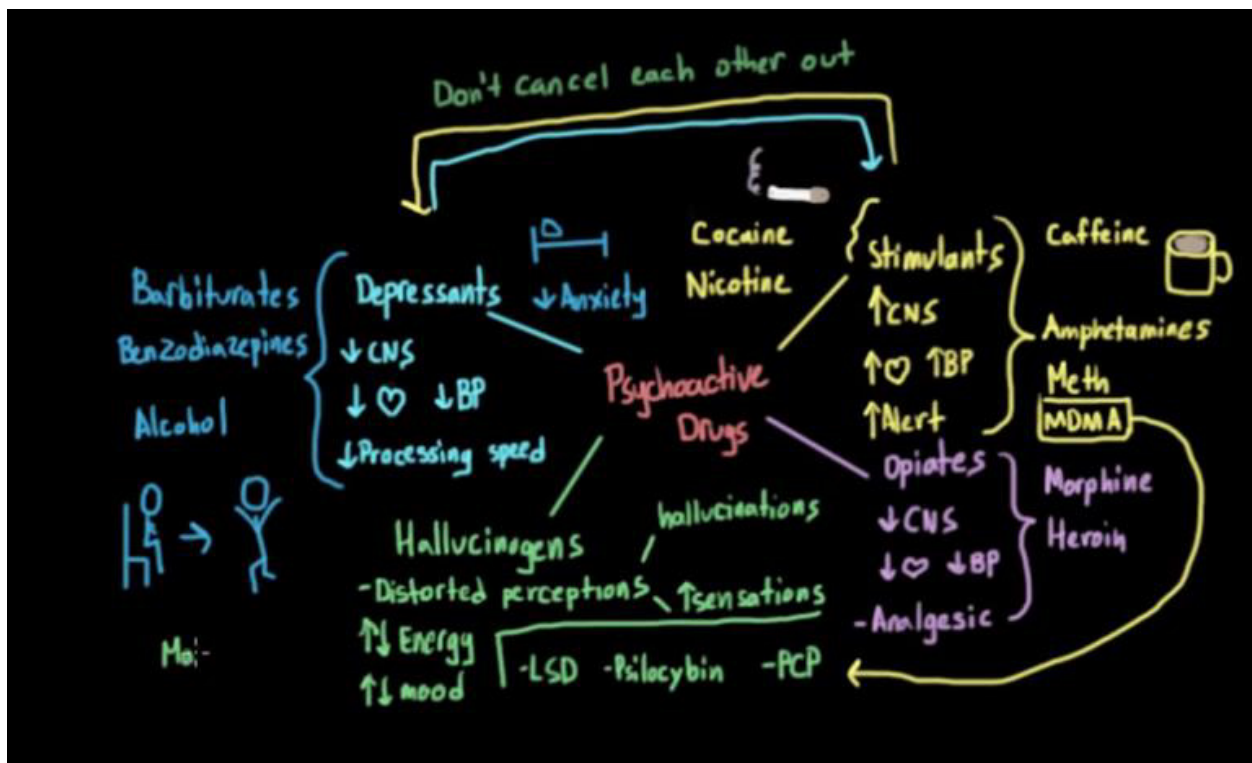 Don't cancel each other out
Barbiturates
Benzodiazepines
Alcohol
Depressants
↓CNS
↓♡ ↓BP
↓Processing speed
↓Anxiety
Cocaine
Nicotine
Stimulants
↑CNS
↑♡ ↑BP
↑Alert
Caffeine
Amphetamines
Meth
MDMA
Psychoactive
Drugs
Opiates
↓CNS
↓♡ ↓BP
-Analgesic
Morphine
Heroin
Hallucinogens
hallucinations
-Distorted perceptions
↑sensations
↑↓Energy
↑↓mood
-LSD -Psilocybin -PCP